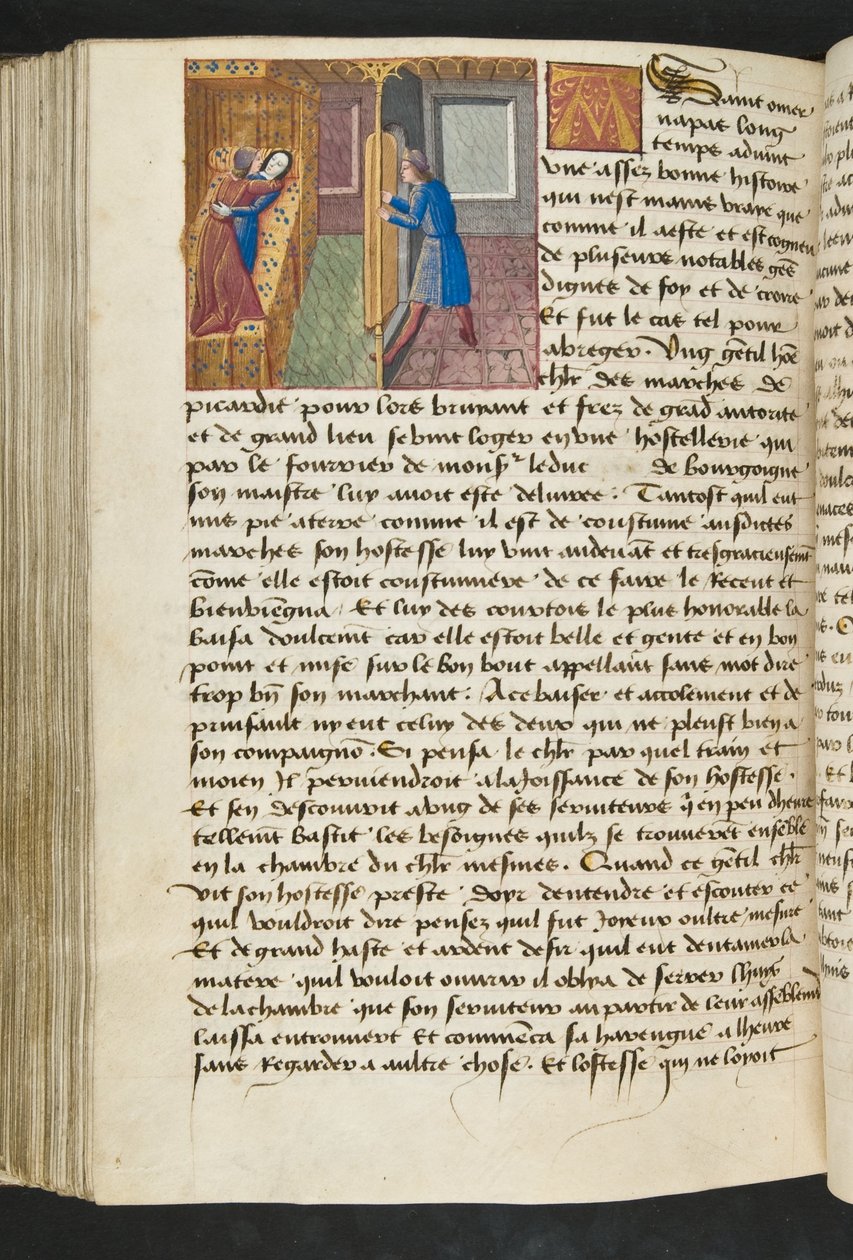 A Saint omer
napas long
temps aduint
vne assez bonne histoire
qui nest mains vraye que
comme il a este et est cogneu
de pluseurs notables ge̅s
dignes de foy et de croire
Et fut le cas tel pour
abreger. Ung ge̅til ho̅e
chl̅r des marches de
picardie pour lors bruyant et frez de gra̅d autorite
et de grand lieu se vint loger en vne hostellerie qui
par le fourrier de monsr le duc de bourgoigne
son maistre luy auoit este deliuree. Tantost quil eut
mis pie a terre comme il est de coustume ausdictes
marches son hostesse luy vint au deua̅t et tresgracieuseme̅t
co̅me elle estoit coustumiere de ce faire le Receut et
bienviengna Et luy des courtois le plus honorable la
baisa doulceme̅t car elle estoit belle et gente et en bon
point et mise sur le bon bout appellant sans mot dire
trop bn̅ son marchant. A ce baiser et accolement et de
prinsault ny eut celuy des deux qui ne pleust bien a
son compaigno̅. Si pensa le chl̅r par quel train et
moien Il peruiendroit a la Joissance de son hostesse.
Et sen descouurit a vng de ses seruiteurs q̅ en peu dheure
telleme̅t bastit les besoignes quilz se trouuere̅t ense̅ble
en la chambre du chl̅r mesmes. Quand ce ge̅til chl̅r
vit son hostesse preste doyr dentendre et escouter ce
quil vouldroit dire pensez quil fut Joyeux oultre mesure
Et de grand haste et ardent desir quil eut dentamer la
matere quil vouloit ouurir il oblia de serrer lhuys
de la chambre que son seruiteur au partir de leur assembleme̅t
laissa entrouuert Et comme̅ca sa harengue alheure
sans Regarder a aultre chose. Et lostesse qui ne loyoit